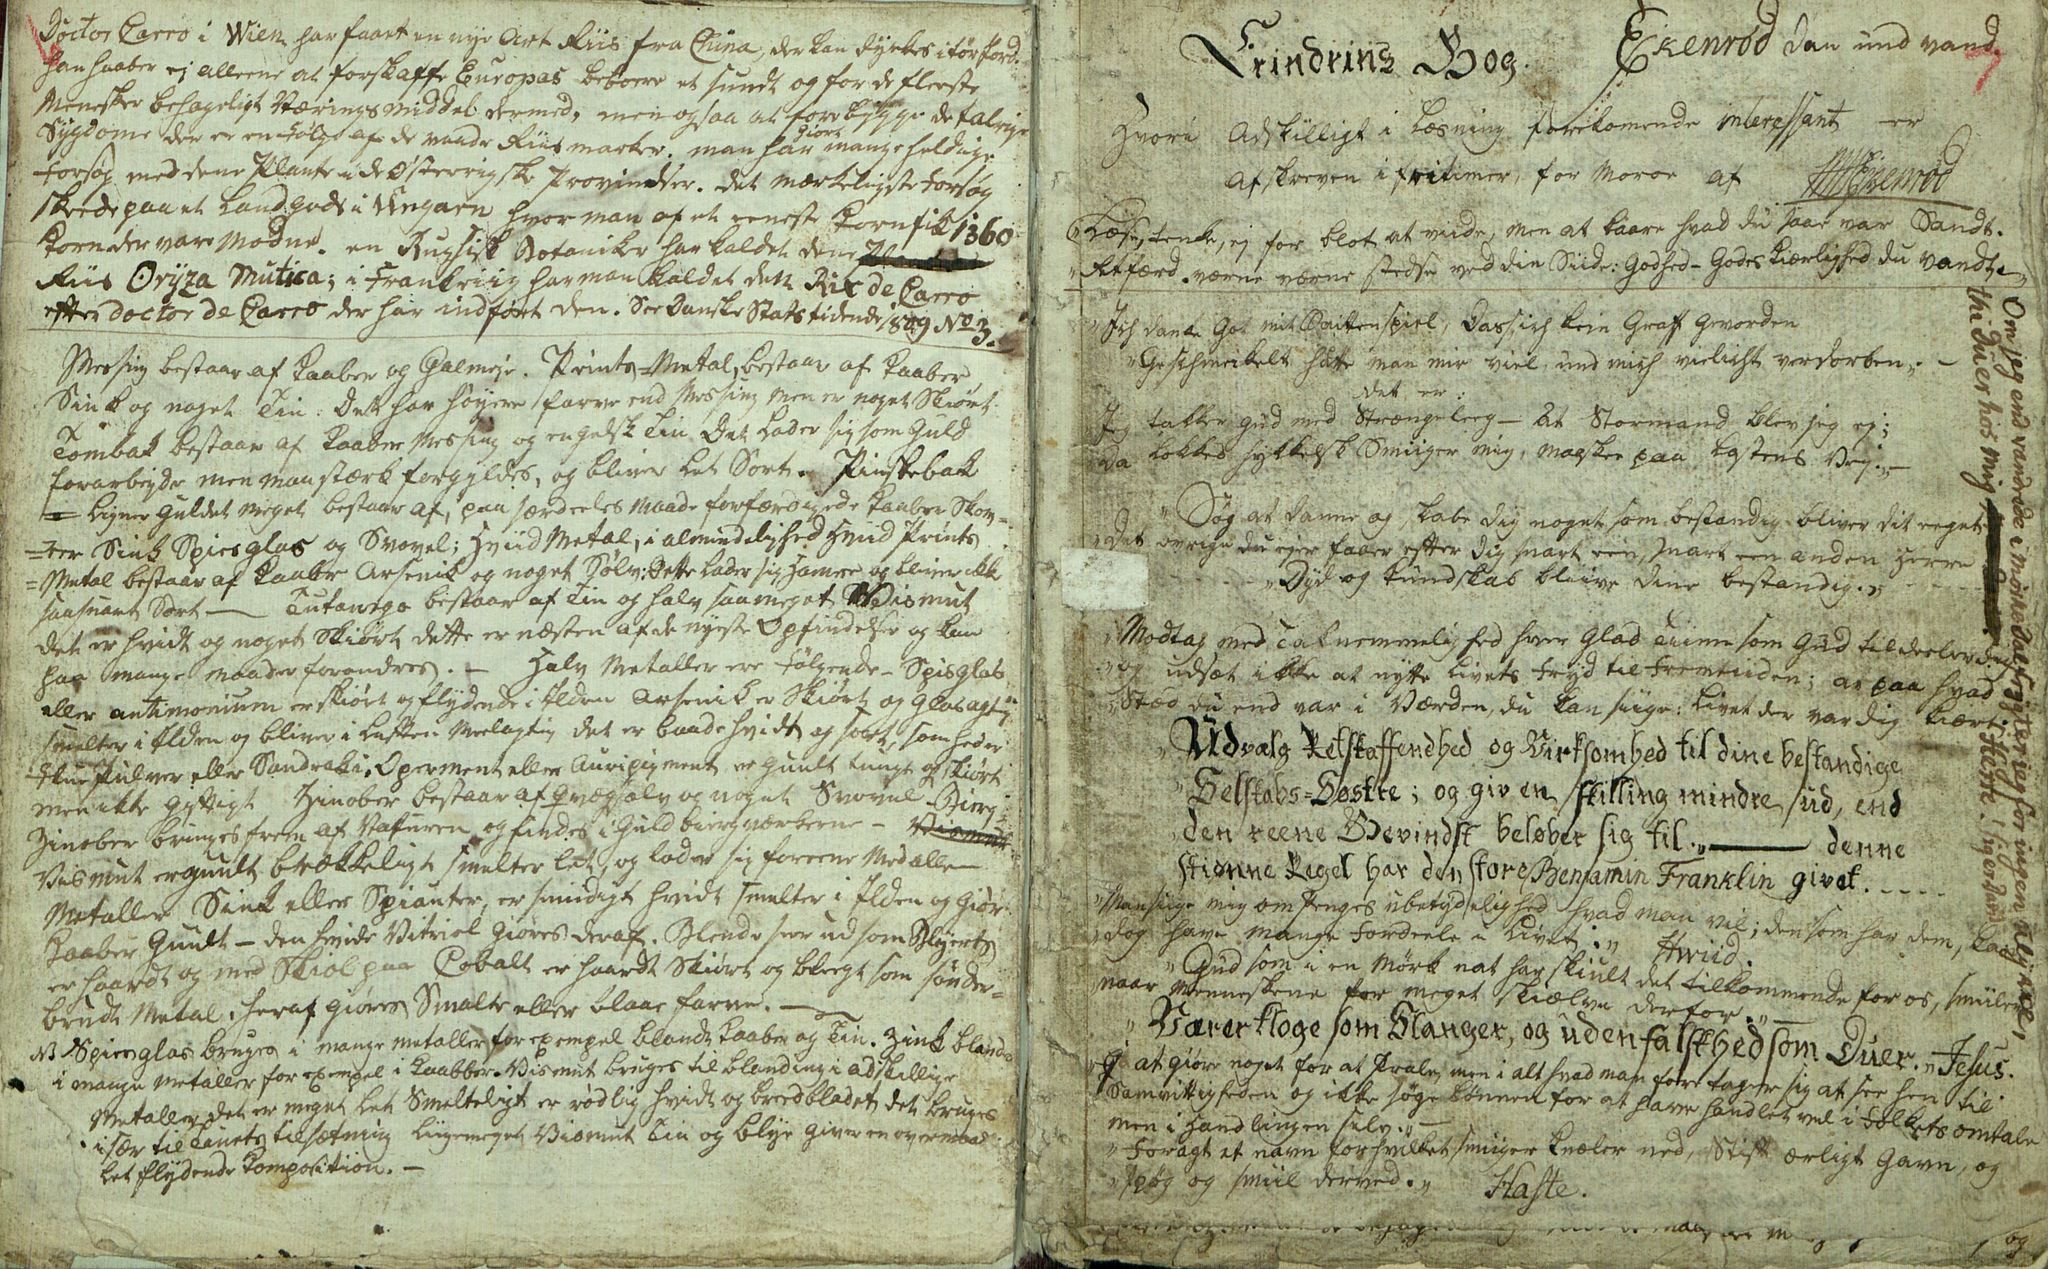 Doctor Carro i Wien har faaet en nye Art Riis fra China, der kan dyrkes i tör Jord.
han haaber ej alleene at forskaffe Europas beboere et sundt og for de fleeste
Menesker behageligt Nærings middel dermed, men ogsaa at forebygge de talrige
Sygdome der er en Fölge af de vaade Riis marker. man har giort mange heldige
forsög med dene Plante i de Österrigske Provindser. det mærkeligste forsög
skeede paa et Landgods i Ungarn hvor man af et eeneste korn fik 1360
korn der vare Modne. en Rusisk Botaniker har kaldet dene
Riis Oryza Mutica; i Frankriig har man kaldet den Rix de Carro
efter doctor de Carro der har indfört den. See Danske Stats tidende 1809 No 3.
Messing bestaar af kaaber og Galmeje. Prints=Metal, bestaar af kaaber
Sink og noget Tin: Det har höyere farve end Messing men er noget Skiört
Tombak bestaar af kaaber Messing og engelsk Tin Det lader sig som Guld
forarbeyde men maa stærk forgyldes, og bliver let Sort. Pinskebak
ligner Guldet meget bestaar af, paa særdeeles maade forfærdigede kaaber Skov=
=ler Sink Spiesglas og Svovel; Hviid Metal, i almindelighed Hviid Prints
=Metal bestaar af kaaber Arsenik og noget Sölv; Dette lader sig Hamre og bliver ikke
saa snart Sort — Tutanego bestaar af Tin og halv saa meget Wismut
det er hvidt og noget Skiört dette er næsten af de nyeste Opfindelser og kan
paa mange maader forandres. — Halv Metaller ere fölgende - Spisglas
eller antimonium er skiört og flydende i Ilden Arsenik er Skiört og Glasagtig
smelter i Ilden og bliver i Luften Meelagtig det er baade hvidt og sort, som heder
Flue Pulver eller Sandraki. Operment eller Auripigment er guult tungt og skiört
men ikke gyftigt Zinober bestaar af qvægsölv og noget Svovel - Bierg=
Zinober bringes frem af Naturen og findes i Guld biergværkerne -
Vismut er guult brækkeligt smelter let, og lader sig foreene Med alle
Metaller Sink eller Spianter, er smidigt hvidt smelter i Ilden og giör
kaaber Guult - den hvide Vitriol giöres deraf. Blende seer ud som Blyerts
er haardt og med Skiol paa Cobalt er haardt Skiört og bleegt som sönder=
brudt Metal. heraf giöres Smalte eller blaae farve. —
NB Spiesglas bruges i mange metaller for exempel blandt kaaber og Tin. Zink bland
i mange Metaller for exempel i kaabber. Vismut bruges til blanding i adskillige
Metaller det er meget let Smelteligt er rödlig hvidt og breedbladet det bruges
især til Tinets tilsætning liigemeget Vismut Tin og blye giver en overmaad
let flydende Komposition. —
Erindrings Bog. Ekenrød Dan und vand.
Hvori Adskilligt i Læsning forekomende interessant er
afskreven i fritimer, for Moroe af Ekenröd
Læse, tenk, ej for blot at viide, men at klare hvad du saae var Sandt.
Retfærd værne værne stedse ved din Siide: Godhed - Godes kierlighed du vandt.
Ich danke Got mit Saittenspiel, Dass ich kein Graff geworden
Geschmeikelt hätte man mir viel, und mich vielicht verdorben. —
det er:
Jeg takker Gud med Strængeleeg — At Stormand blev jeg ej;
Da lokkes hykkelsk Smiiger mig, maaskee paa Lastens Vej. —
Søg at danne og skabe dig noget som bestandig bliver dit eeget
Det övrige du ejer faaer efter dig snart een, snart een anden Herre
Dyd og kundskab bliive dine bestandig.
Modtag med Taknemmelighed hver glad Tiime som Gud tildeeler dig
og udsæt ikke at nytte Livets Fryd til Fremtiiden; at paa hvad
Stæd du end var i Værden, du kan siige: Livet der var dig kiert.
Udvælg Retskaffendhed og Virksomhed til dine bestandige
Selskabs=Søstre; og giv en skilling mindre ud, end
den reene Gevindst beløber sig til. — denne
skiønne Regel har den store Benjamin Franklin givet.
Man siige mig om Penges ubetydelighed hvad man vil; den som har dem, kan
dog have mange Fordeele i Livet. Hviid.
Gud som i en Mörk nat har skiult det tilkommende for os, smiiler
naar Menneskene for meget skiælve derfor. —
Værer kloge som Slanger, og uden falskhed som Duer. Jesus.
Ej at giöre noget for at Prale, men i alt hvad man foretager sig at see hen til
Samvittigheden og ikke söge lönnen for at have handlet vel i Folkets omtale
men i Handlingen selv. —
Foragt et navn for hvilket smiiger knæler ned, Stift ærligt Gavn, og
spög og smiil derved. Haste.
og
Om jeg end vandrede i mörke Dal frygter jeg for ingen Ulykke,
thi Du er hos mig Herre!